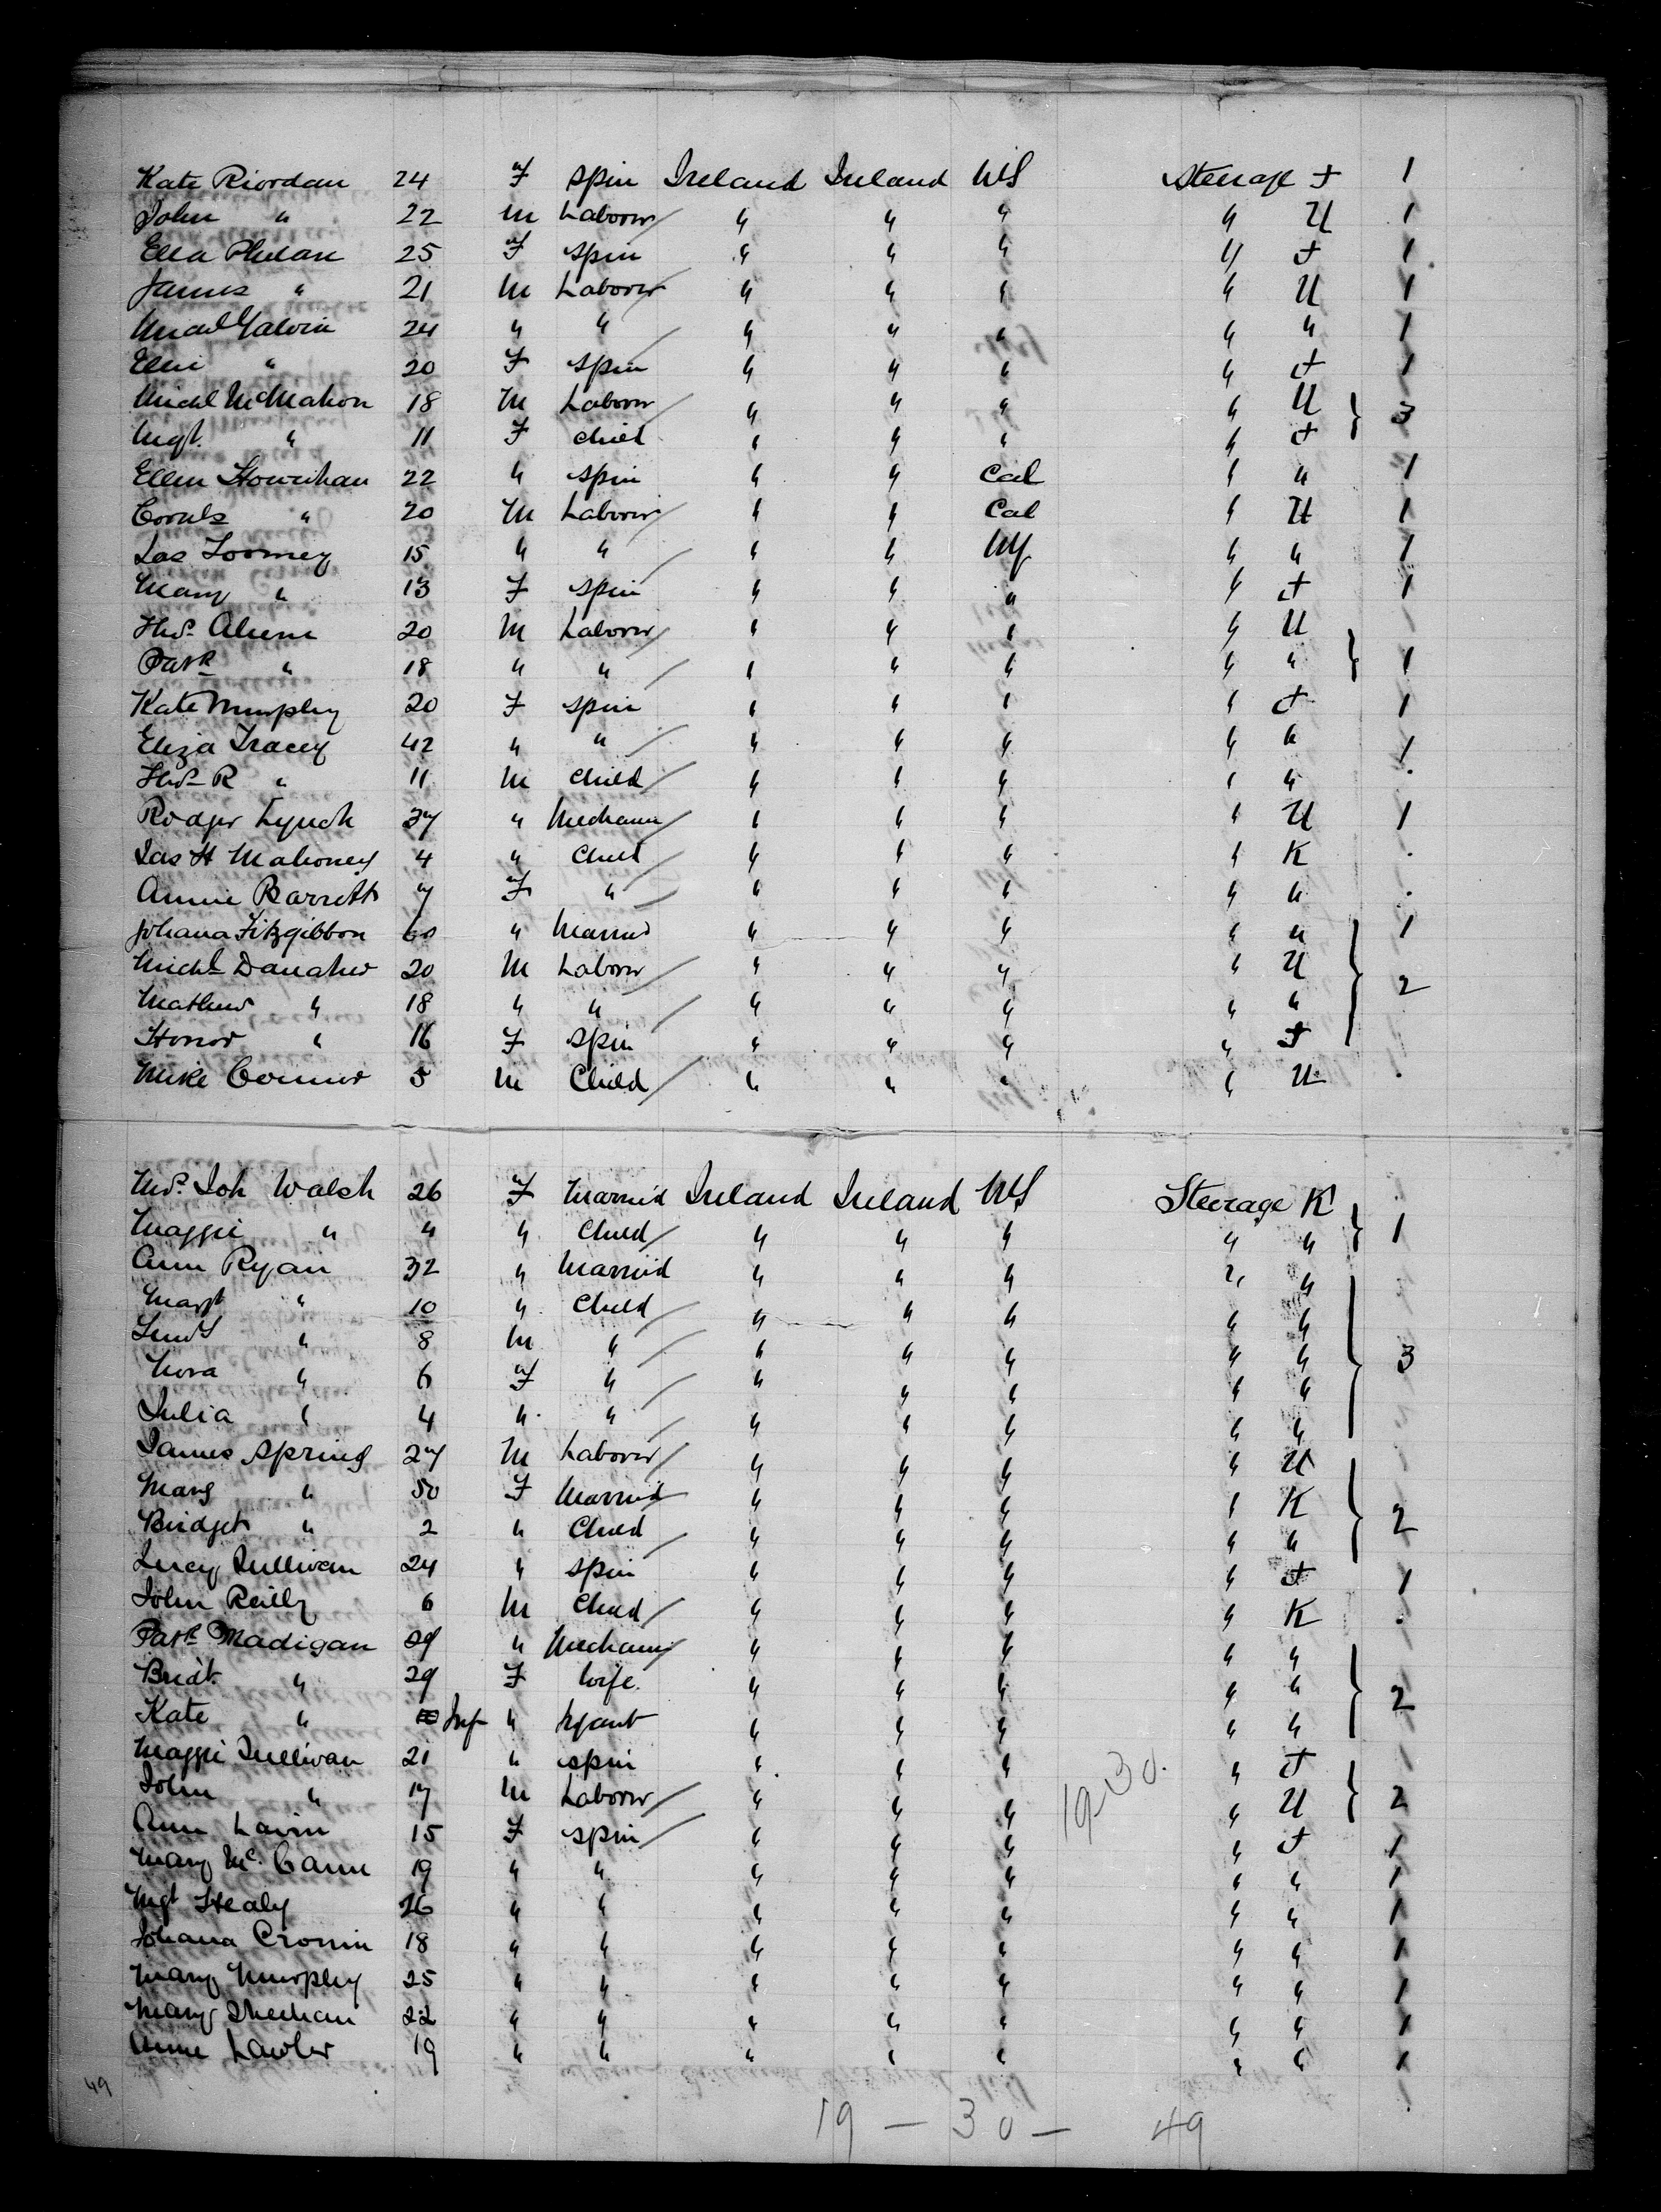 Kate Riordan 24 F Spin Ireland Ireland US Steerage F 1
John " 22 M Laborer " " " " U 1
Ella Phelan 25 F Spin " " " " F 1
James " 21 M Laborer " " " " U 1
Michl Galvin 24 " " " " " " " 1
Ellie " 20 F Spin " " " " F 1
Michl McMahon 18 M Laborer " " " " U 3
Mgt. " 11 F Child " " " " F
Ellen Hourihan 22 " Spin " " Cal " " 1
Corns " 20 M Laborer " " Cal " U 1
Jas Toomey 15 " " " " NY " " 1
Mary " 13 F Spin " " " " F 1
Thos Ahern 20 M Laborer " " " " U
Patk " 18 " " " " " " " 1
Kate Murphy 20 F Spin " " " " F 1
Eliza Tracey 42 " " " " " " " 1
Thos R " 11 M Child " " " " "
Rodger Lynch 37 " Mechanic " " " " U 1
Jas H Mahoney 4 " Child " " " " K
Annie Barrett 7 F " " " " " "
Johana Fitzgibbon 60 " Married " " " " " 1
Michl Danaher 20 M Laborer " " " " U 2
Mathew " 18 " " " " " " "
Honor " 16 F Spin " " " " F
Mike Connor 5 M Child " " " " U
Mrs. Joh Walsh 26 F Married Ireland Ireland US Steerage K
Maggie " 4 " Child " " " " " 1
Ann Ryan 32 " Married " " " " "
Margt " 10 " Child " " " " "
" 8 M " " " " " " 3
Nora " 6 F " " " " " "
Julia " 4 " " " " " " "
James Spring 27 M Laborer " " " " U
Marg " 50 F Married " " " " K 2
Bridget " 2 " Child " " " " "
Lucy Sullivan 24 " Spin " " " " F 1
John Reilly 6 M Child " " " " K
Patk Madigan 29 " Mechanic " " " " "
Bridt. " 29 F Wife " " " " " 2
Kate " Inf " Infant " " " " "
Maggie Sullivan 21 " Spin " " " " F
John " 17 M Laborer " " " " U 2
Ann Lavin 15 F Spin " " " " F 1
Mary McCann 19 " " " " " " " 1
Mgt Healy 26 " " " " " " " 1
Johana Cronin 18 " " " " " " " 1
Mary Murphy 25 " " " " " " " 1
Mary Sheehan 22 " " " " " " " 1
Anne Lawler 19 " " " " " " " 1
19-30.
49
19 - 30 - 49